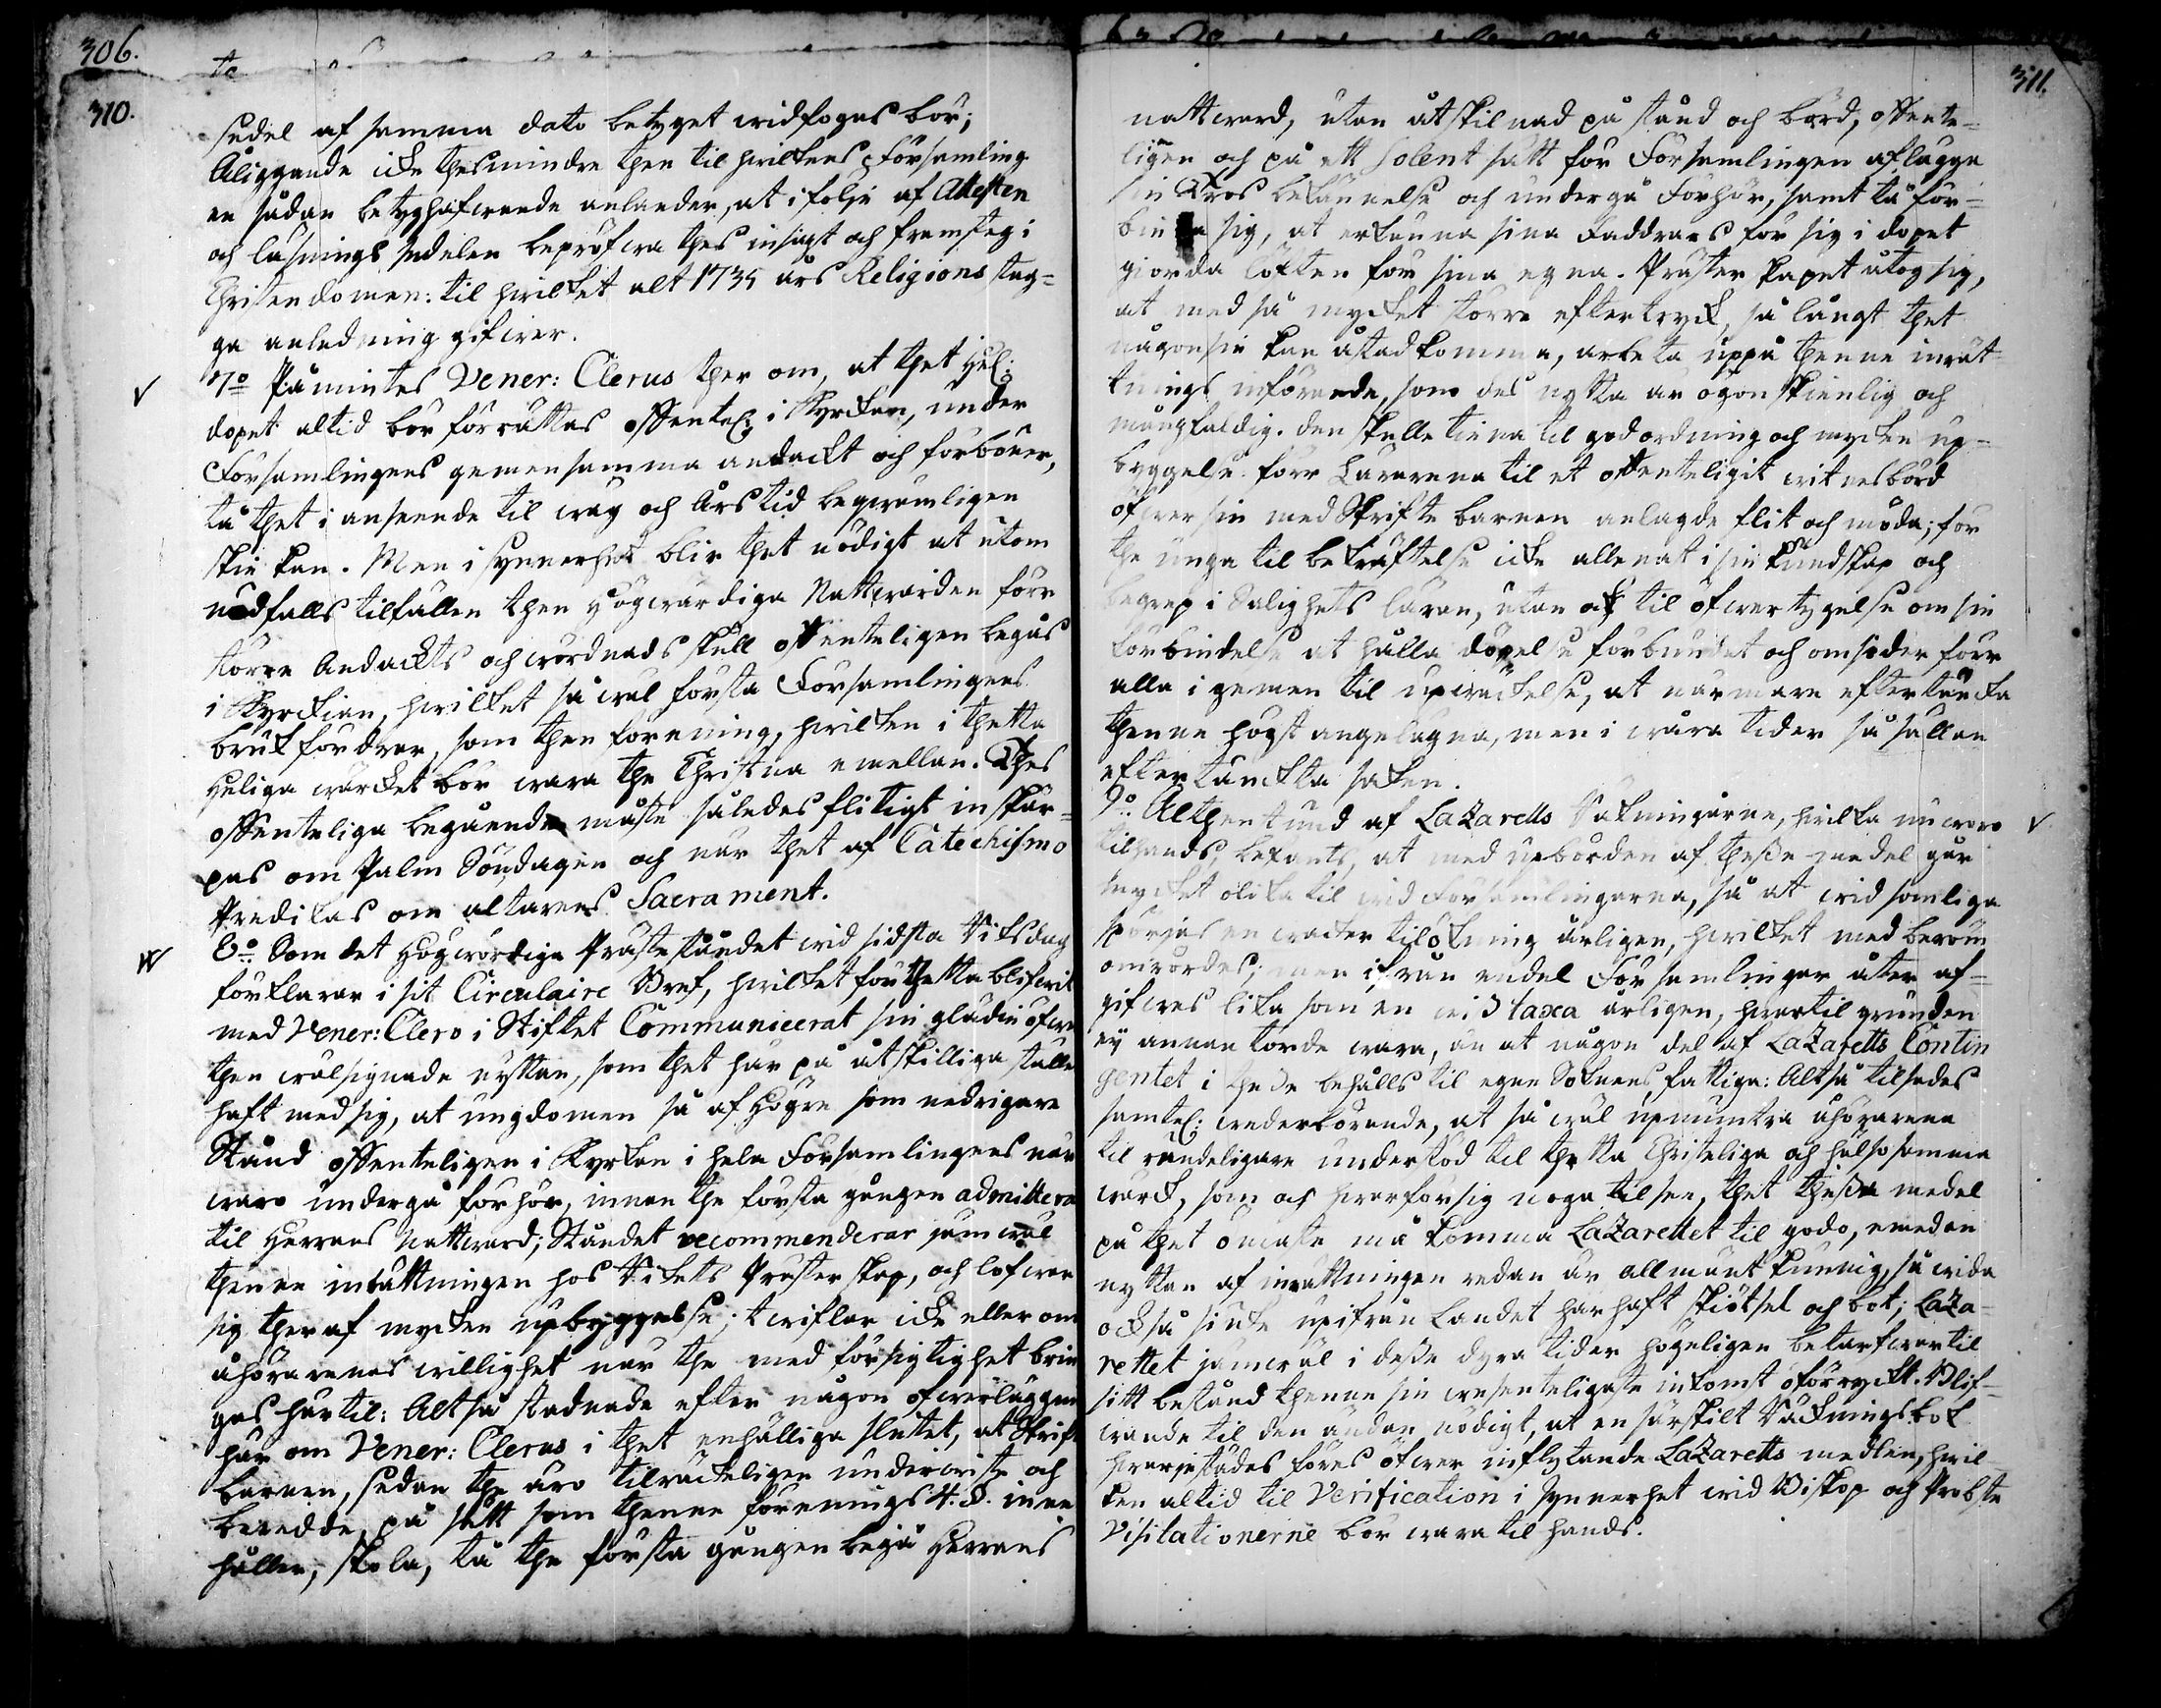 306.
310.
sedel af samma dato betyget widfogas bör;
Åliggande icke thesmindre then til hwilkens Församling
en sådan betyghafwande anlænder, at i följe af Attesten
och läsnings sedelen bepröfwa thes insigt och framsteg i
Christendomen: til hwilket alt 1735 års Religions stag=
ga anledning gifwer.
7:o Påmintes Vener: Clerus ther om, at thet Hel:
dopet altid bör förrättas offentel: i Kyrckan, under
Församlingens gemensamma andackt och förböner,
tå thet i anseende til wäg och Årstid beqwämligen
skie kan. Men i synnerhet blir thet nödigt at utom
nödfalls tilfällen then Högwärdiga Nattwarden förr
större Andackts och wördnads skull offenteligen begås
i Kyrckian, hwilket så wäl första Församlingens
bruk fordrar, som then förening, hwilken i thetta
Heliga wärcket bör wara the Christna emellan. Thes
offenteliga begående måste således flitigt inskär=
pas om Palm Söndagen och när thet af Catechismo
Predikas om altarens Sacrament.
8:o Som det Högwördiga Prästeståndet wid sidsta Riksdag
förklarar i sit Circulaire Bref, hwilket för thetta blifwit
med Vener: Clero i Stiftet Communicerat sin glädie öfwer
then wälsignade nyttan, som thet har på åtskilliga ställe
haft med sig, at ungdomen så af Högre som nedrigare
Stånd offenteligen i Kyrkan i hela Församlingens när
waro undergå förhör, innan the första gången admittera
til Herrans Nattward; Ståndet recommenderar jämwäl
thenna inrättningen hos Rikets Prästerskap, och lofwar
sig theraf mycken upbyggelse; twiflar icke eller om
åhörarenas willighet när the med försigtighet brin
gas härtil: Altså stadnade efter någon öfwerläggni
här om Vener: Clerus i thet enhälliga slutet, at Skrift
barnen, sedan the äro tilräckeligen underwiste och
beredde, på sätt som thenne förenings 4. §. inne
håller, skola, tå the första gången begå Herrans
311.
nattward, utan åtskilnad på stånd och börd, offente=
ligen och på ett Solent sätt för Församlingen aflägga
sin Tros bekännelse och undergå Förhör, samt tå för=
binda sig, at erkänna sina Faddrars för sig i dopet
giorda löften för sina egna. Prästerskapet åtog sig,
at med så mycket större eftertryck, så långt thet
någonsin kan åstadkomma, arbeta uppå thenne inrät=
tnings införande, som des nytta är ögonskienlig och
mångfaldig. Den skulle tiena til god ordning och mycken up=
byggelse: förr Lärarena til et offenteligit witnesbörd
öfwer sin med Skrifte barnen anlagde flit och möda; för
the unga til bekräftelse icke allenast i sin kundskap och
begrep i Salighets läran, utan ock til öfwertygelse om sin
förbindelse at hålla döpelse förbundet och omsider förr
alla i gemen til upwäckelse, at närmare eftertäncka
thenne högst angelägna, men i wåra tider så sällan
eftertänckta saken.
9:o Althenstund af Lazaretts Räkningarne, hwilka nu woro
tilhands, bekants, at med upbörden af thesse medel går
mycket olika til wid Församlingarna, så at wid somliga
spörjes en wacker tilökning årligen, hwilket med beröm
omrördes; men ifrån endel Församlingar åter af=
gifwes lika som en wiss taxa årligen, hwartil grunden
ey annan torde wara, än at någon del af Lazaretts Contin
gentet i thesse behålls til egen Soknens fattiga: Altså tilsades
samtel: wederbörande, at så wäl upmuntra åhörarena
til rundeligare understöd til thetta Christeliga och hälsosamma
wärck, som och hwar för sig noga tilsee, thet thesse medel
på thet ömaste må komma Lazarettet til godo, emedan
nyttan af inrättningen redan är allmänt kunnig, så wida
också siuke upifrån Landet har haft skiötsel och bot; Laza=
rettet jämwäl i desse dyra tider högeligen betarfwar til
sitt bestånd thenne sin wesenteligaste inkomst oförryckt. Blif=
wande til den ändan nödigt, at en särskilt Räkningsbok
hwarjestädes föres öfwer inflytande Lazaretts medlen, hwil=
ken altid til Verification i synnerhet wid Biskop och Probste
Visitationerne bör wara til hands.